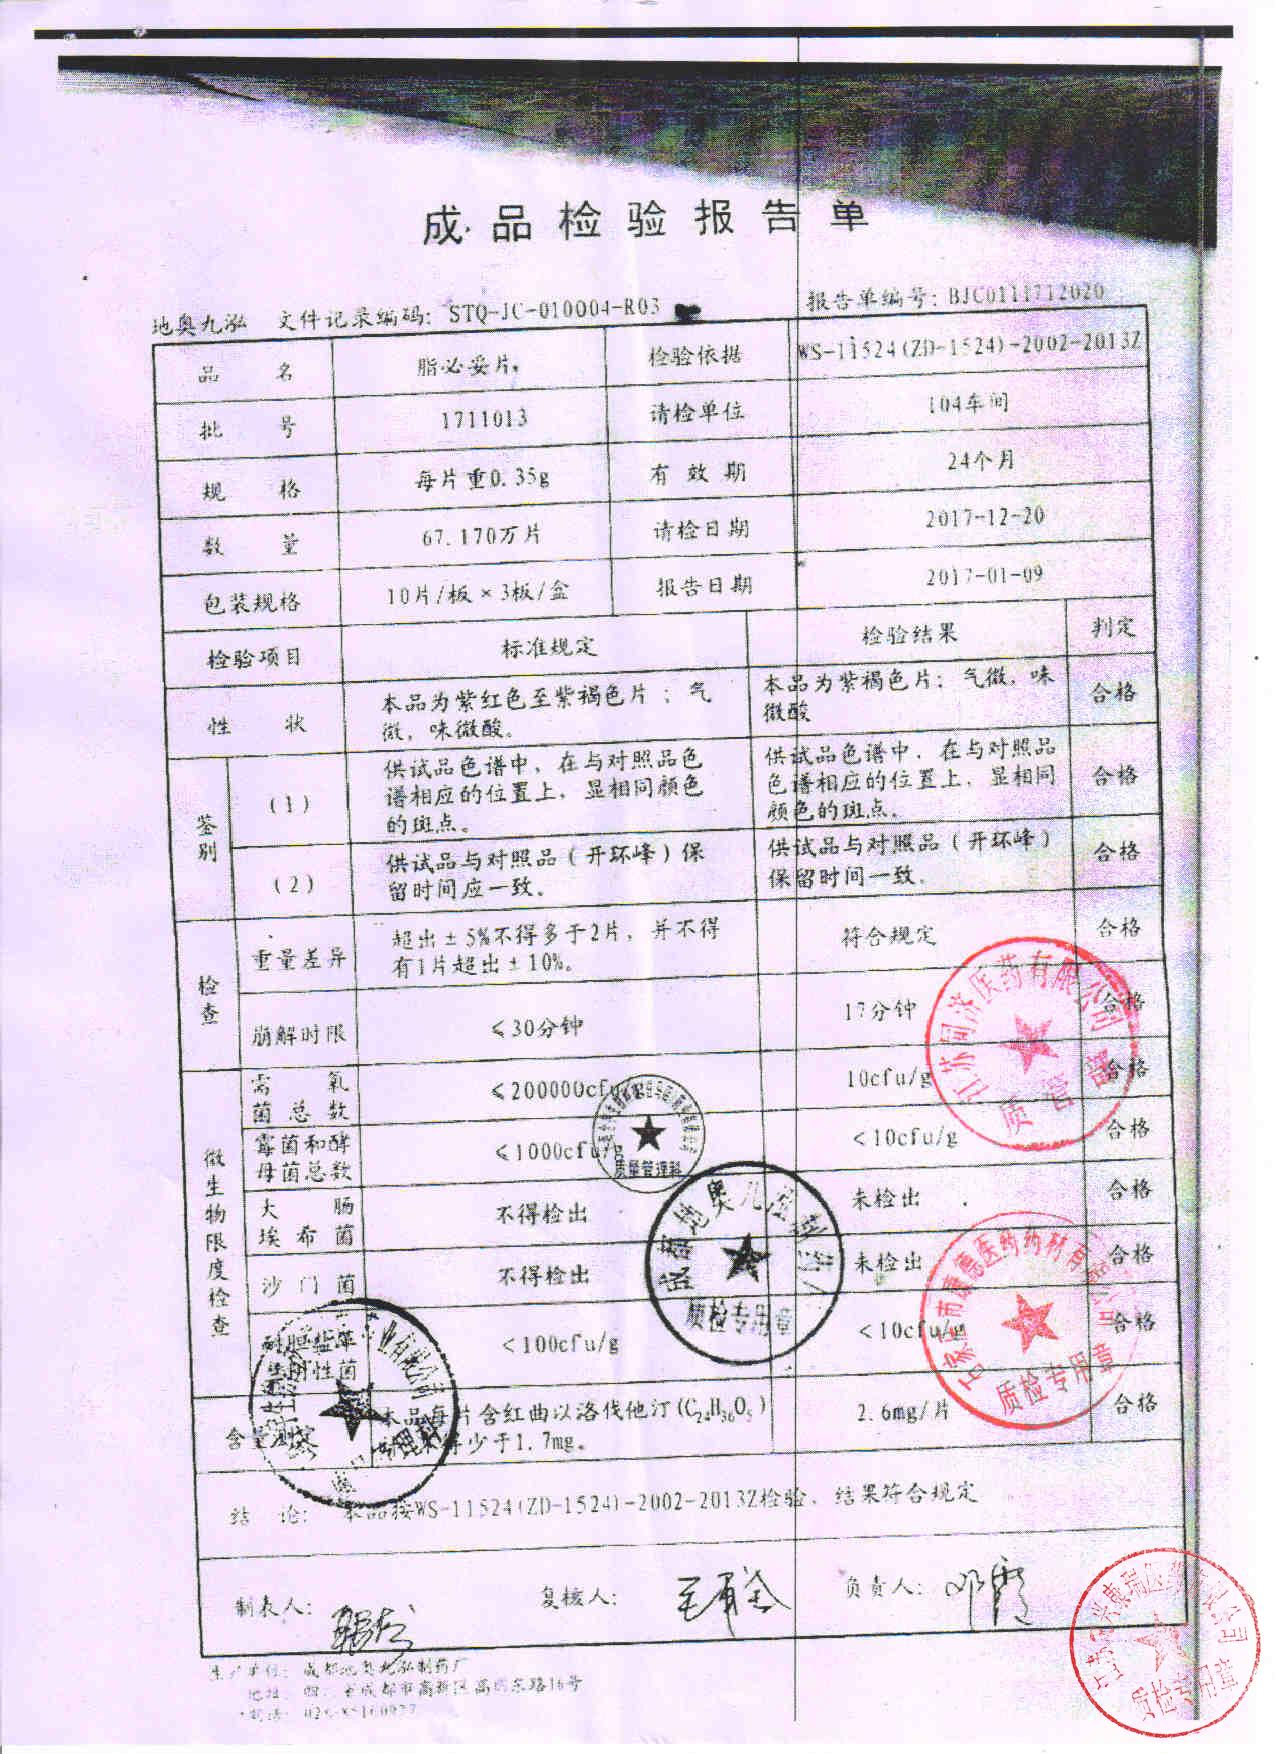 成品检验报告单
地奥九泓 文件记录编码: STQ-JC-010004-R03 报告单编号: BJC0111712020
品名 脂必妥片 检验依据 WS-11524(ZD-1524)-2002-2013Z
批号 1711013 请检单位 104车间
规格 每片重0.35g 有效期 24个月
数量 67.170万片 请检日期 2017-12-20
包装规格 10片/板×3板/盒 报告日期 2017-01-09
检验项目 标准规定 检验结果 判定
性状 本品为紫红色至紫褐色片；气 本品为紫褐色片；气微，味 合格
微，味微酸。 微酸
鉴别 (1) 供试品色谱中，在与对照品色 供试品色谱中，在与对照品 合格
谱相应的位置上，显相同颜色 色谱相应的位置上，显相同
的斑点。 颜色的斑点。
(2) 供试品与对照品（开环峰）保 供试品与对照品（开环峰） 合格
留时间应一致。 保留时间一致。
检查 重量差异 超出±5%不得多于2片，并不得 符合规定 合格
有1片超出±10%。
崩解时限 ≤30分钟 17分钟 合格
微生物限度检查 需氧 ≤200000cfu/g 10cfu/g 合格
菌总数
霉菌和酵 ≤1000cfu/g <10cfu/g 合格
母菌总数
大肠 不得检出 未检出 合格
埃希菌
沙门菌 不得检出 未检出 合格
<100cfu/g <10cfu/g 合格
性菌
含量 本品每片含红曲以洛伐他汀(C24H36O5) 2.6mg/片 合格
少于1.7mg。
结论: 本品按WS-11524(ZD-1524)-2002-2013Z检验，结果符合规定
制表人: 复核人: 负责人: 邓霞
生产单位: 成都地奥九泓制药厂
地址: 四川省成都市高新区高朋东路16号
电话:
江苏同济医药有限公司
质管部
质量管理科
成都地奥九泓制药厂
质检专用章
石家庄市康德医药药材有限公司
质检专用章
业有限公司
质检专用章